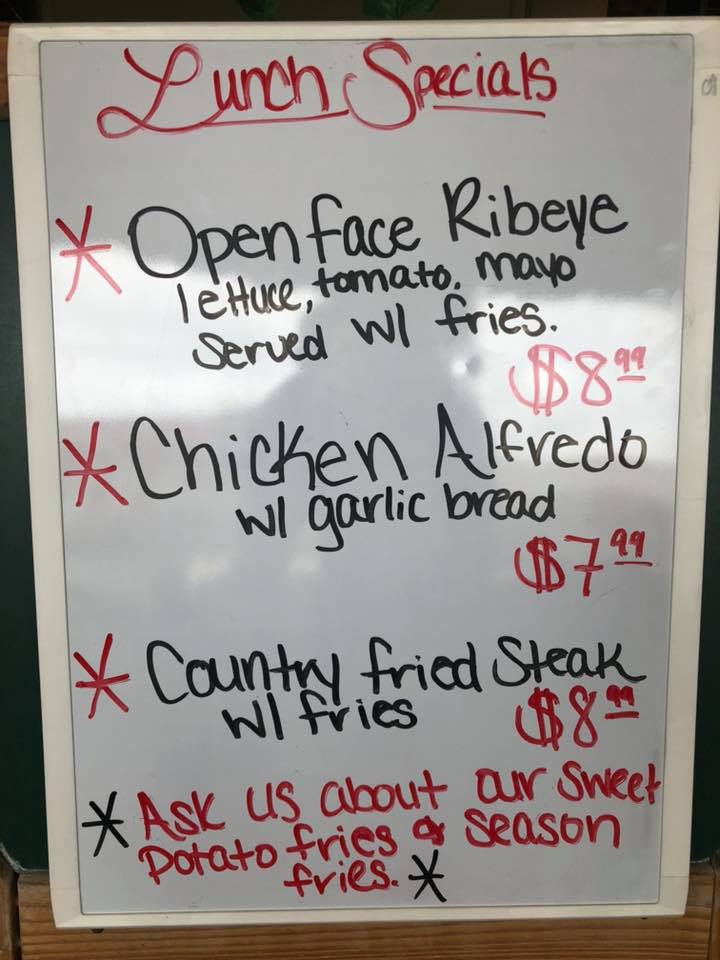 Lunch Specials
* Open face Ribeye
lettuce, tomato, mayo
Served w/ fries.
$8.99
* Chicken Alfredo
w/ garlic bread
$7.99
* Country fried Steak
w/ fries $8.99
* Ask us about our sweet
potato fries & season
fries. *